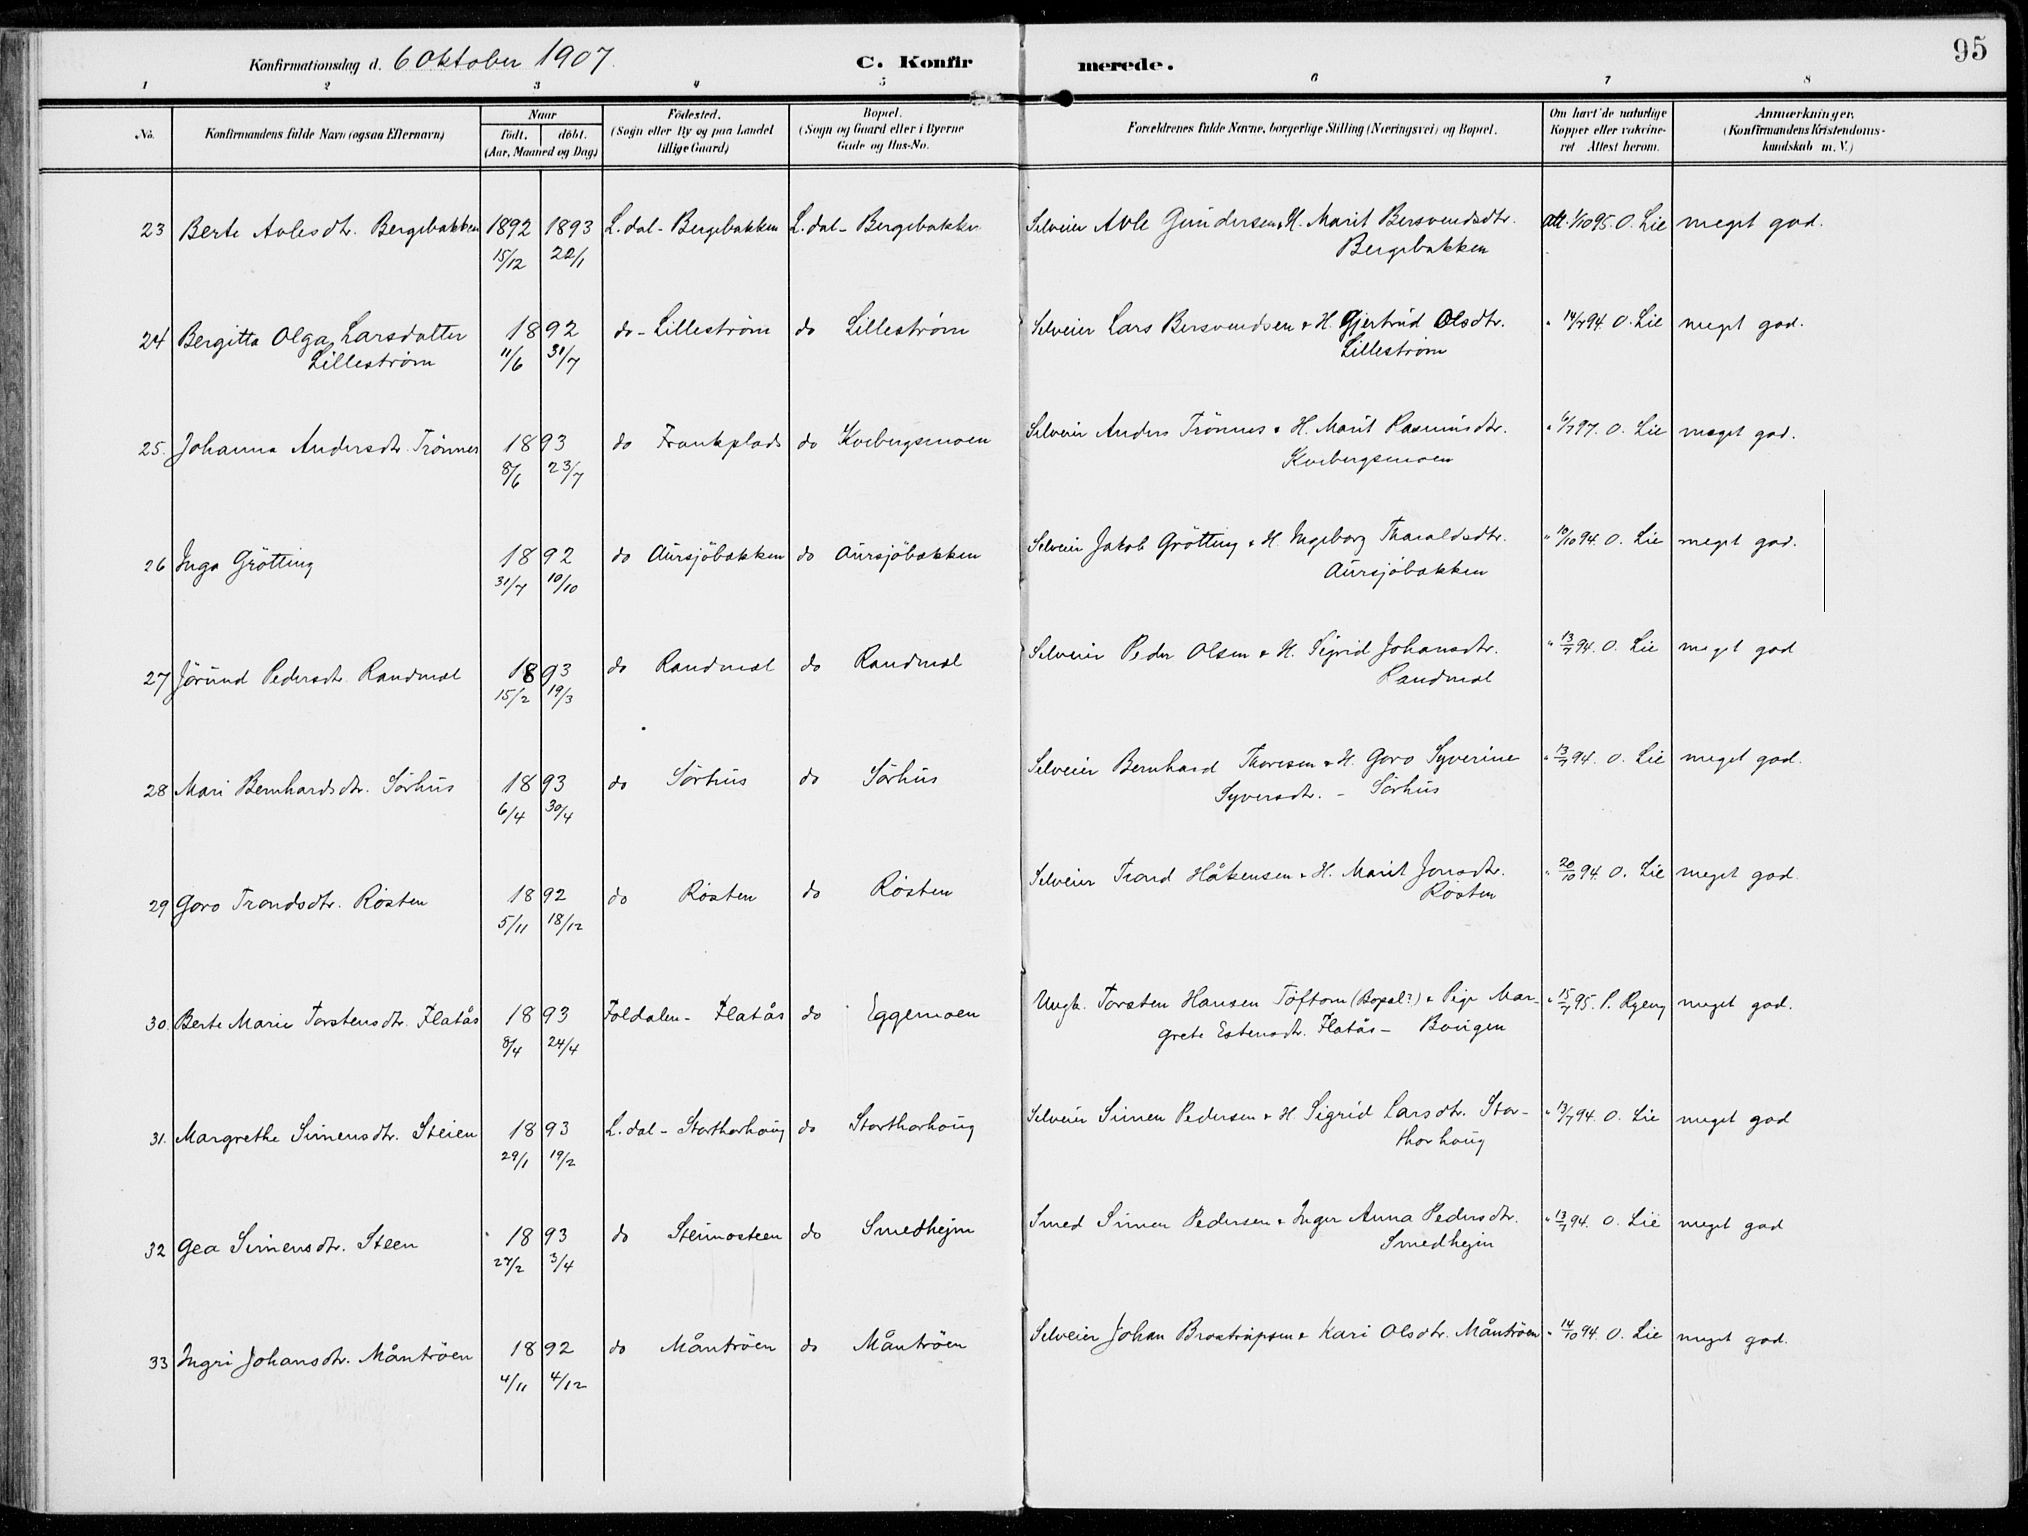 95
Konfirmationsdag d. 6 Oktober 1907.
C. Konfirmerede.
1 2 3 4 5 6 7 8
No. Konfirmandens fulde Navn (ogsaa Efternavn) Naar født. døbt. (Aar, Maaned og Dag) Födested. (Sogn eller By og paa Landet tillige Gaard) Bopæl. (Sogn og Gaard eller i Byerne Gade og Hus-No. Forældrenes fulde Navne, borgerlige Stilling (Næringsvei) og Bopæl. Om havt de naturlige Kopper eller vakcineret Attest herom. Anmærkninger. (Konfirmandens Kristendomskundskab m. V.)
23 Berte Avlesdtr. Bergebakken 1892 1893 L.dal - Bergebakken L.dal - Bergebakken Selveier Avle Gundersen & H. Marit Bersvendsdtr. att. 1/10 95. O. Lie meget god.
15/12 22/1 Bergebakken
24 Bergitta Olga Larsdatter 1892 do - Lilleström do Lilleström Selveier Lars Bersvendsen & H. Gjertrud Olsdtr. " 14/7 94. O. Lie meget god.
Lilleström 11/6 31/7 Lilleström
25. Johanna Andersdtr. Trönnes 1893 do Frankplads do Kvebergsmoen Selveier Anders Trönnes & H. Marit Rasmusdtr. " 6/7 97. O. Lie meget god.
8/6 23/7 Kvebergsmoen
26 Inga Grötting 1892 do Aursjöbakken do Aursjöbakken Selveier Jakob Grötting & H. Ingeborg Tharaldsdtr. " 10/10 94. O. Lie meget god.
31/7 10/10 Aursjöbakken
27 Jörund Pedersdtr. Randmæl 1893 do Randmæl do Randmæl Selveier Peder Olsen & H. Sigrid Johansdtr. " 13/7 94. O. Lie meget god
15/2 19/3 Randmæl
28 Mari Bernhardsdtr. Sörhus 1893 do Sörhus do Sörhus Selveier Bernhard Thoresen & H. Goro Syverine " 13/7 94. O. Lie meget god.
6/4 30/4 Syversdtr. - Sörhus
29 Goro Trondsdtr. Rösten 1892 do Rösten do Rösten Selveier Trond Håkensen & H. Marit Jonsdtr. " 20/10 94 O. Lie meget god.
5/11 18/12 Rösten
30. Berte Marie Torstensdtr. Flatås 1893 Foldalen - Flatås do Eggemoen Ungk. Torsten Hansen Töftom (Bopæl?) & Pige Mar- " 15/7 95. P. Ryeng meget god.
8/4 24/4 grete Estensdtr. Flatås -
31. Margrethe Simensdtr. Steien 1893 L.dal - Storthorhoug do Storthorhoug Selveier Simen Pedersen & H Sigrid Larsdtr. Stor- " 13/7 94. O. Lie meget god
29/1 19/2 thorhoug
32 Gea Simensdtr. Steen 1893 do Steimosteen do Smedhejm Smed Simen Pedersen & Inger Anna Pedersdtr. " 13/7 94. O. Lie meget god
27/2 3/4 Smedhejm
33 Ingri Johansdtr. Måntröen 1892 do Måntröen do Måntröen Selveier Johan Brostrupsen & Kari Olsdtr. Måntröen " 14/10 94. O. Lie meget god.
4/11 4/12